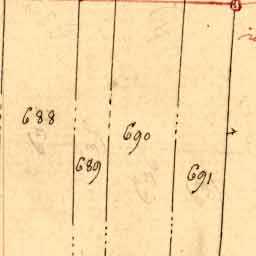 688
690
689
691